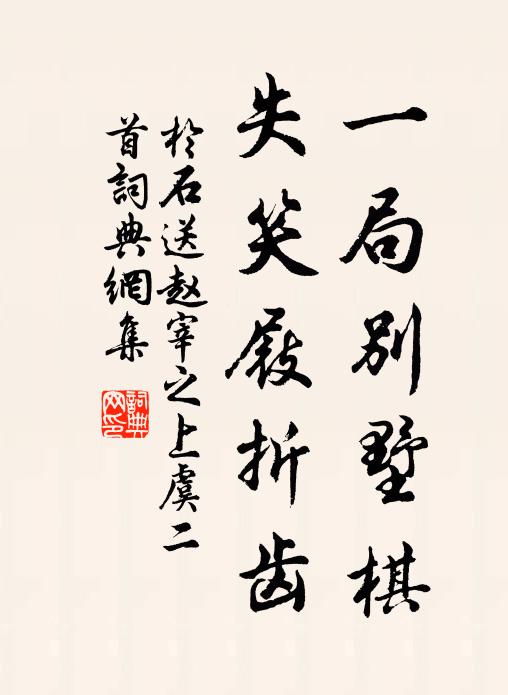 一局别墅棋
失笑屐折齿
於石送赵宰之上虞二
首詞典網集
詞典网印